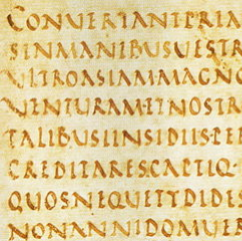 CONVERTANTPRIA
SINMANIBUSVESTR
VLTROASIAMMAGNO
VENTURAMETNOSTR
TALIBUSINSIDIISPER
CREDITARES.CAPTIQ·
QUOSNEQUETYDIDES
NONANNIDOMUER